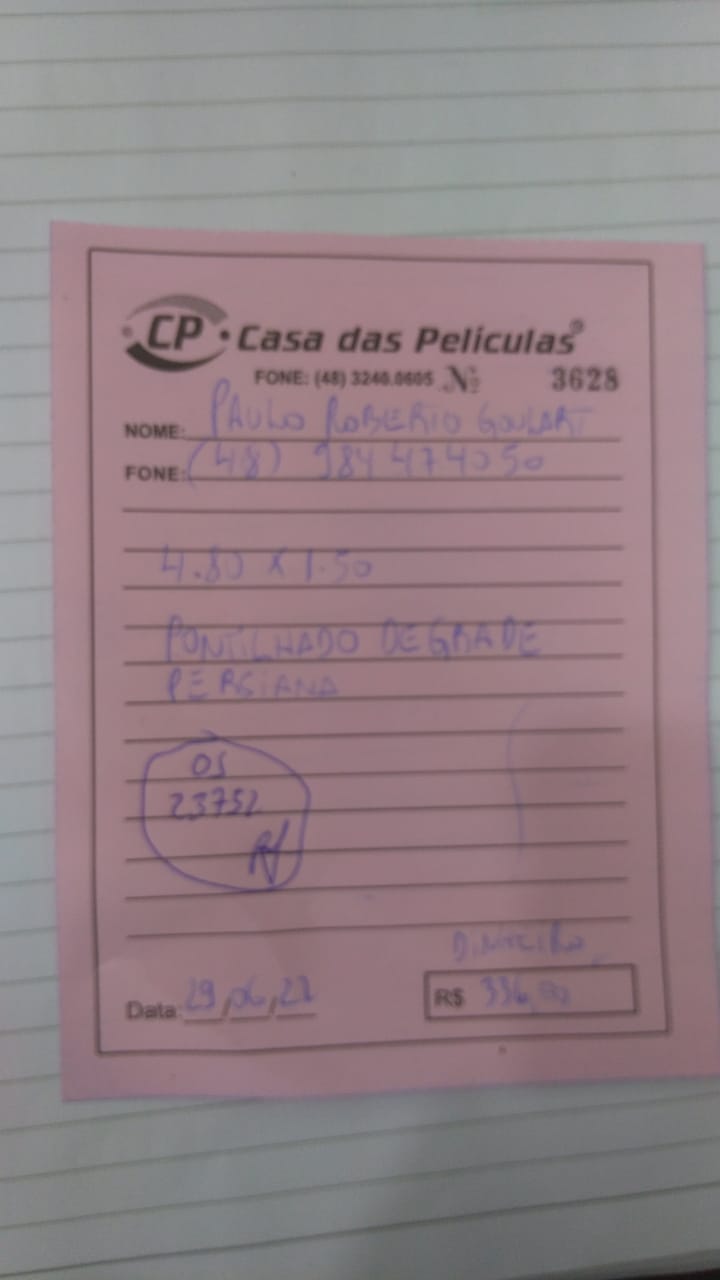 CP • Casa das Películas®
FONE: (48) 3246.0605 Nº 3628
NOME: PAULO ROBERTO GOULART
FONE: (48) 984474050
4.80 X 1.50
PONTILHADO DEGRADE
PERSIANA
OS
23752
DINHEIRO
Data: 29/06/
R$ 336,00